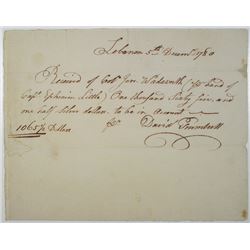 Lebanon 5th Decemr 1780
Receved of Colo Jere. Wadsworth (pr hand of
Capt Ephraim Little) One thousand Sixty five, and
one half Silver dollars to be in Account
1065½ Dollars pr David Trumbull